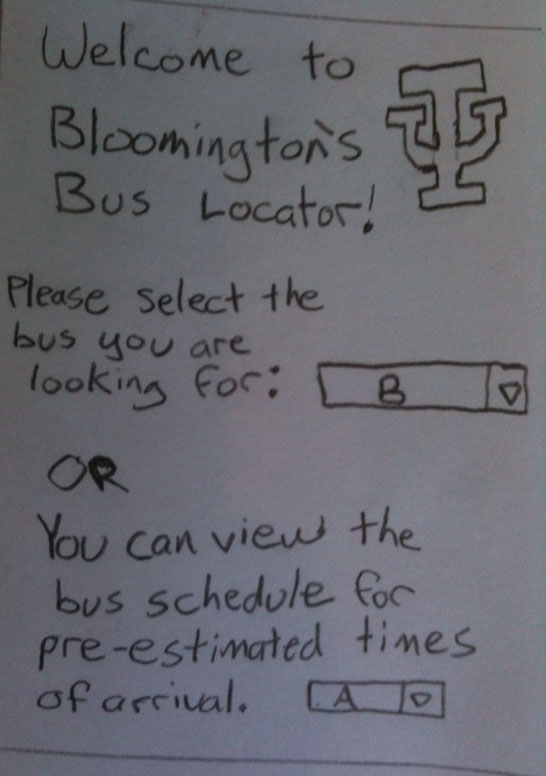 Welcome to
Bloomington's
Bus Locator!
IU
Please select the
bus you are
looking for:
B
OR
You can view the
bus schedule for
pre-estimated times
of arrival.
A